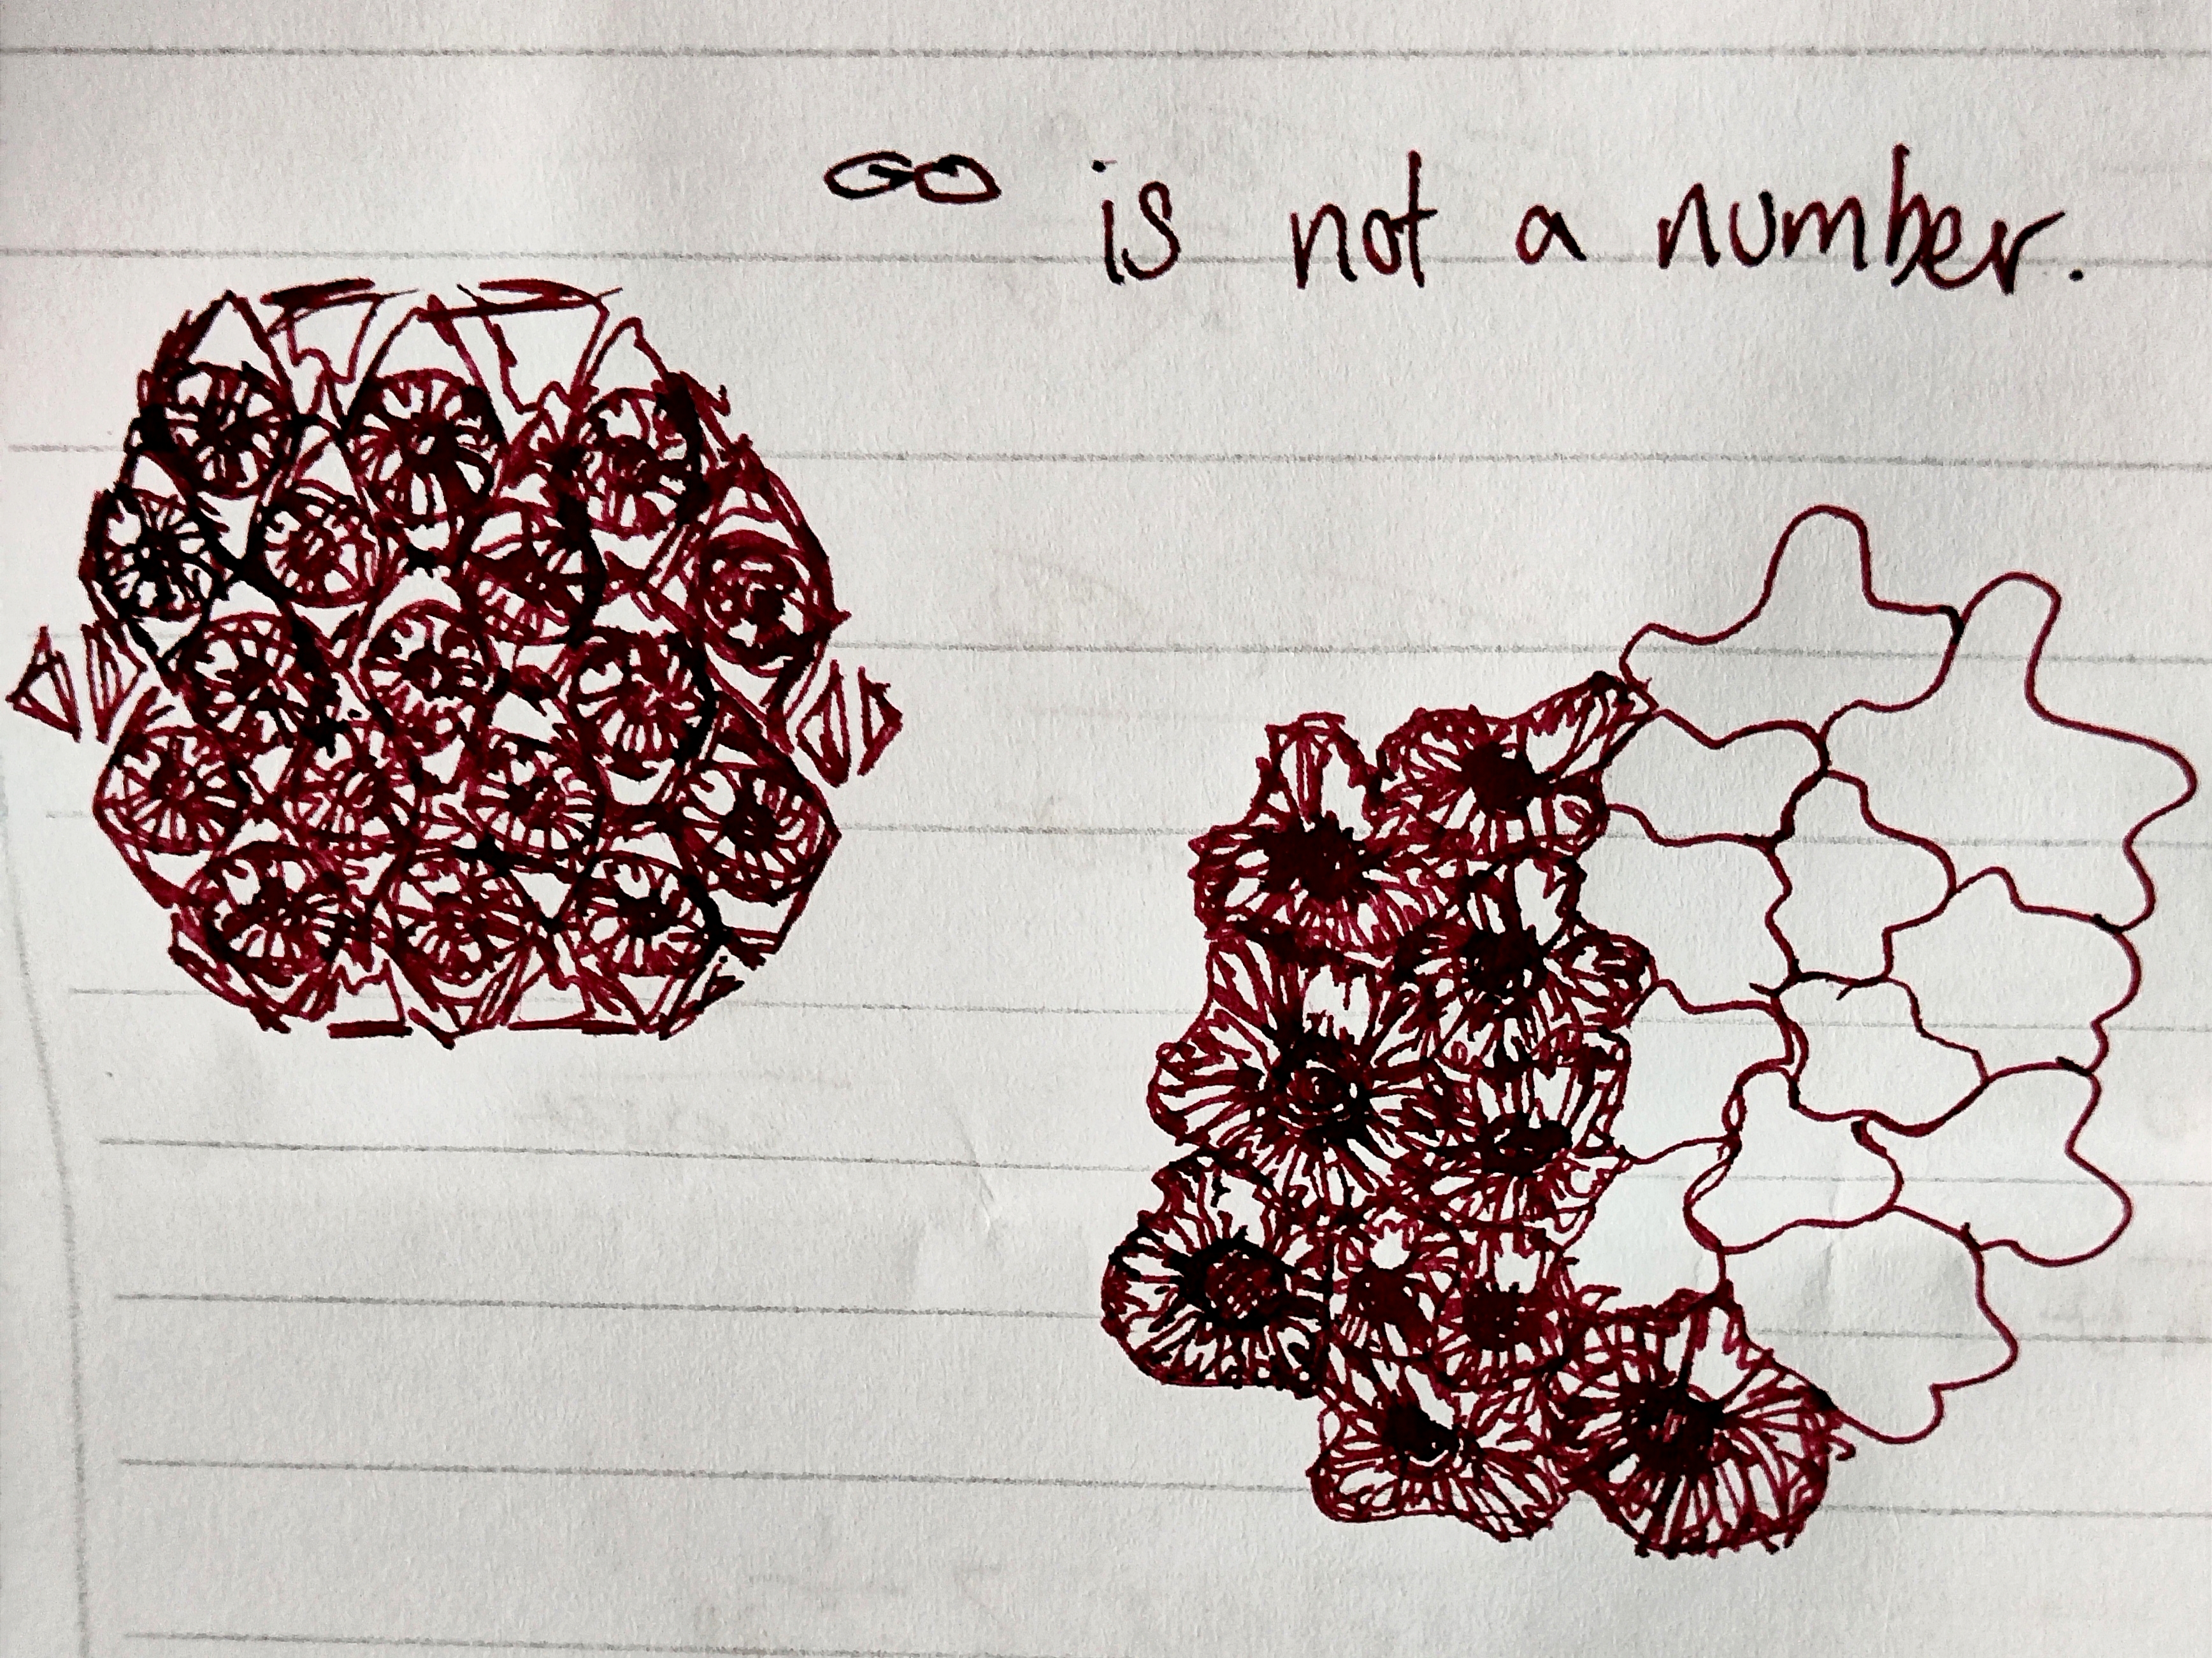 ∞ is not a number.